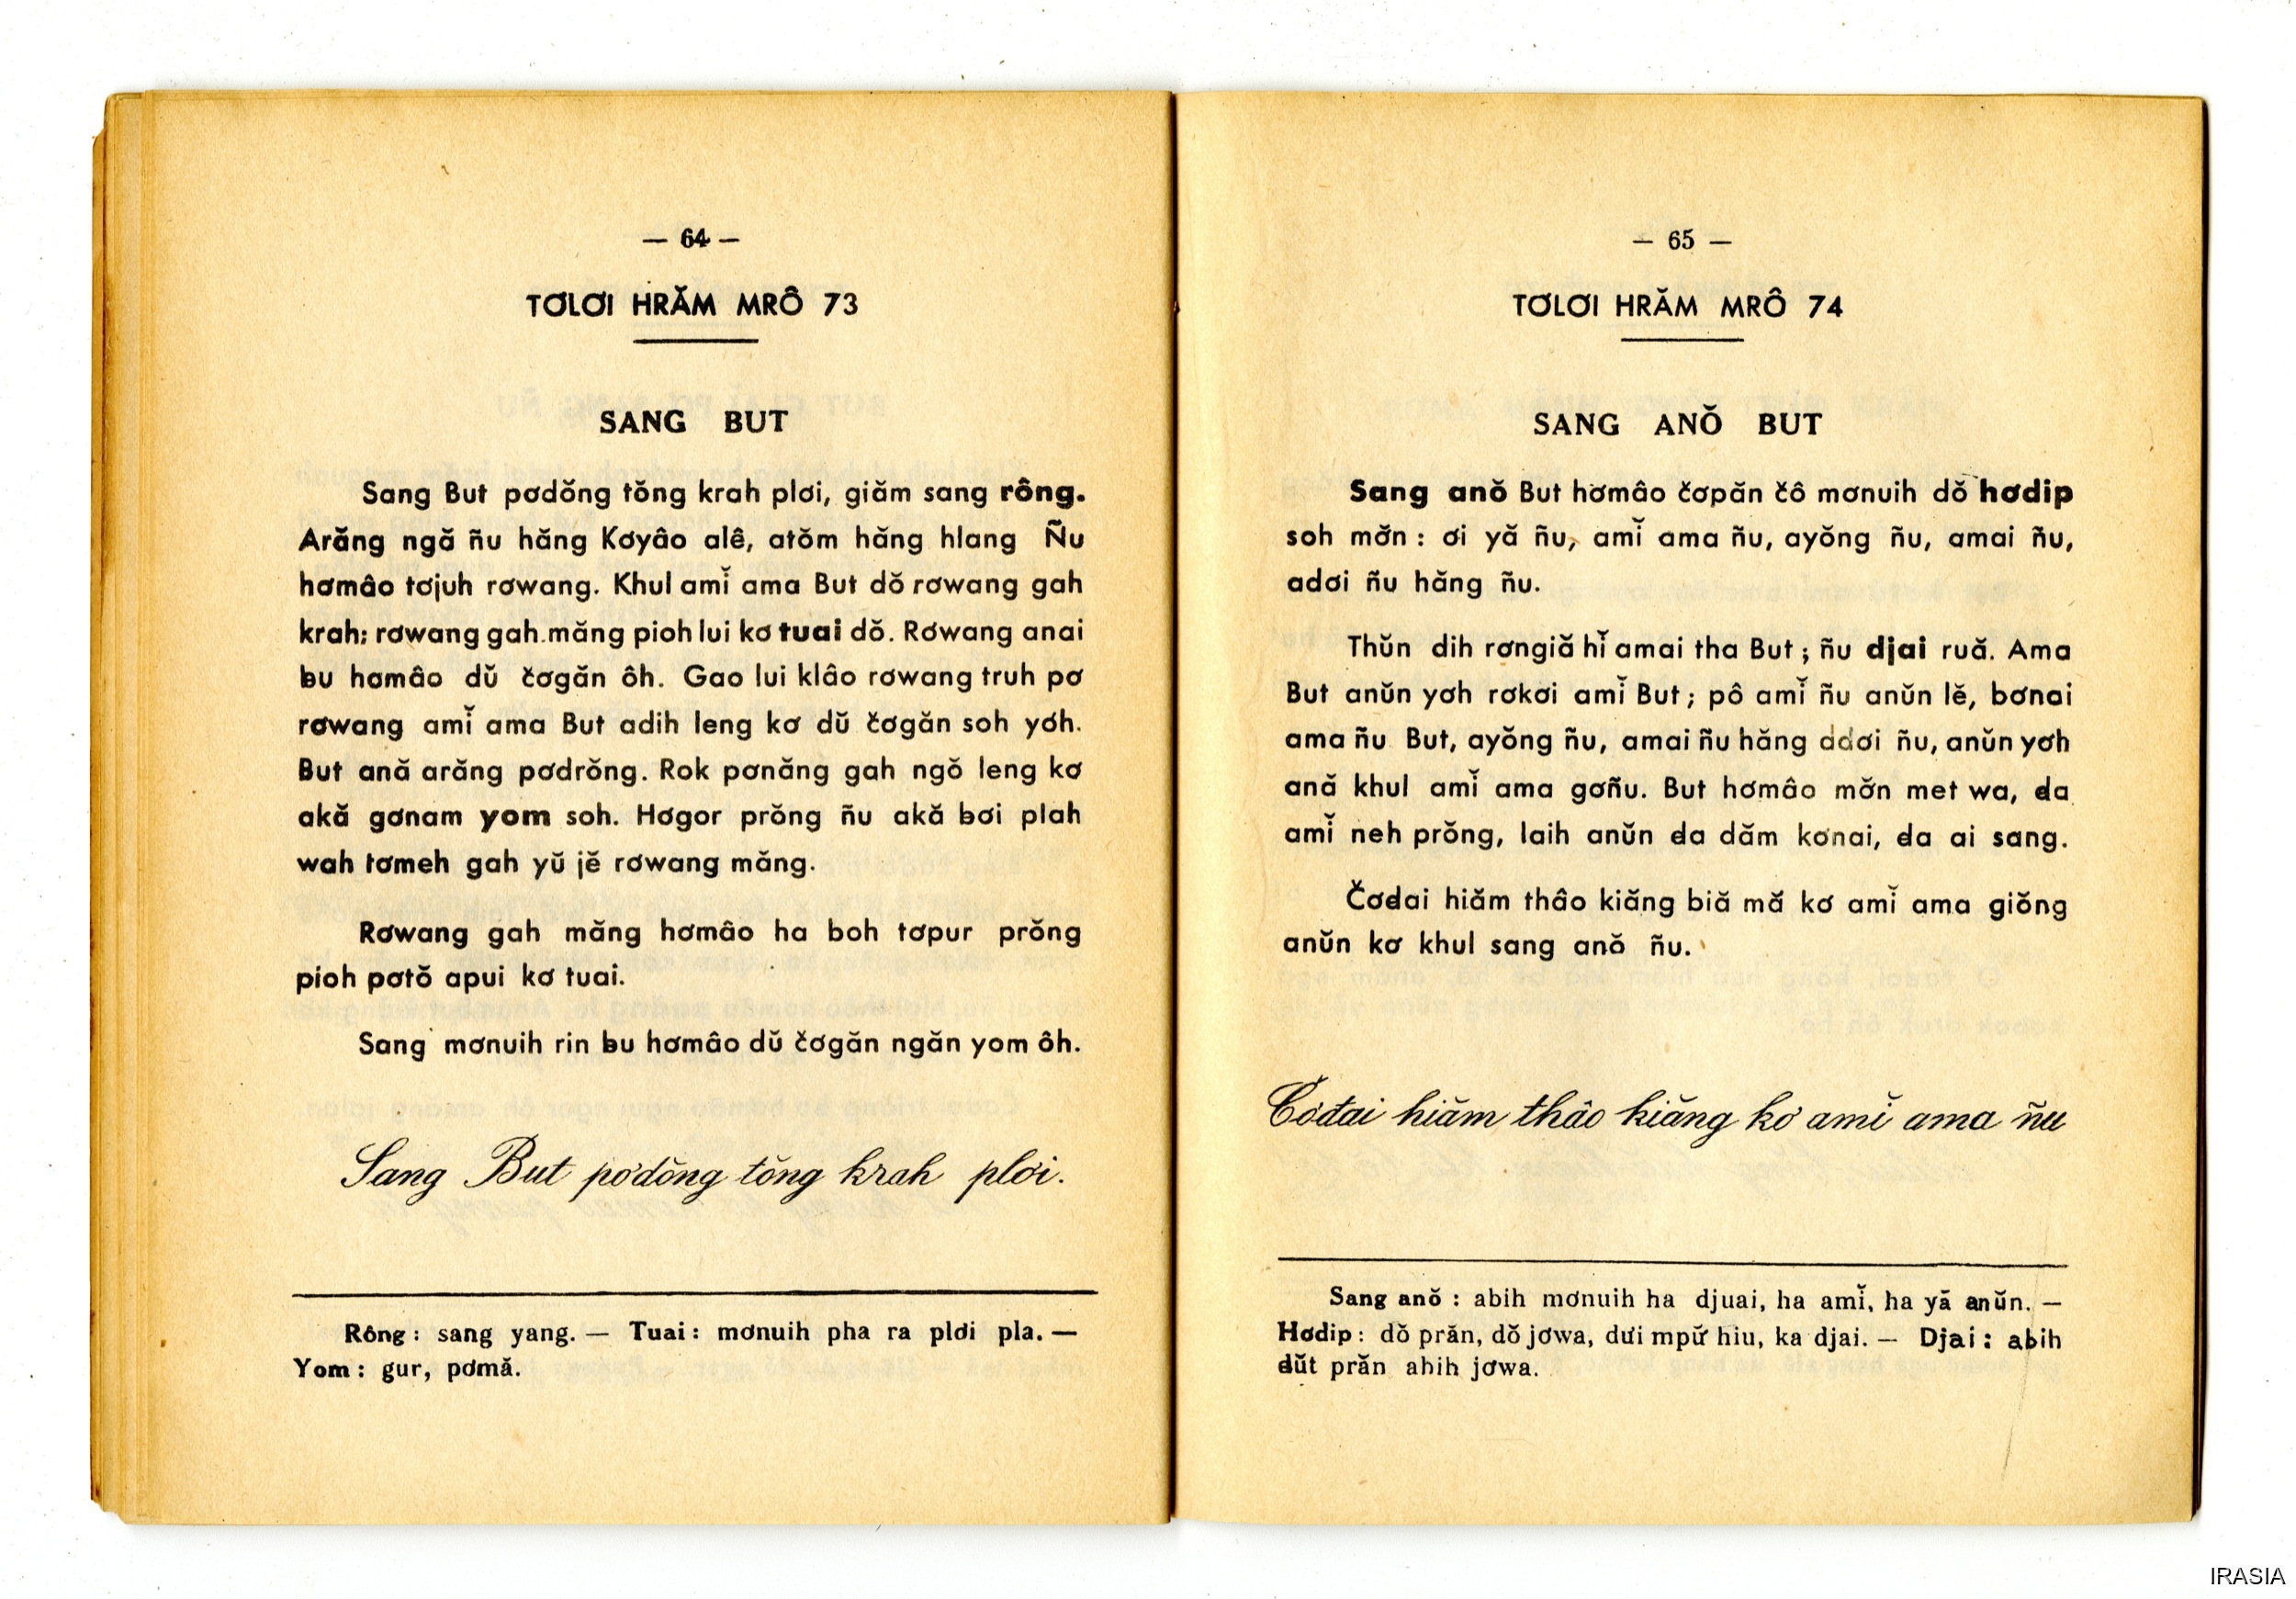 — 64 —
TƠLƠI HRĂM MRÔ 73
SANG BUT
Sang But pơdŏng tŏng krah plơi, giăm sang rông.
Arăng ngă ñu hăng Kơyâo alê, atŏm hăng hlang Ñu
hơmâo tơjuh rơwang. Khul amĭ ama But dŏ rơwang gah
krah; rơwang gah măng pioh lui kơ tuai dŏ. Rơwang anai
ƀu hơmâo dŭ čơgăn ôh. Gao lui klâo rơwang truh pơ
rơwang amĭ ama But adih leng kơ dŭ čơgăn soh yơh.
But ană arăng pơdrŏng. Rok pơnăng gah ngŏ leng kơ
akă gơnam yom soh. Hơgor prŏng ñu akă ƀơi plah
wah tơmeh gah yŭ jĕ rơwang măng.
Rơwang gah măng hơmâo ha boh tơpur prŏng
pioh pơtŏ apui kơ tuai.
Sang mơnuih rin ƀu hơmâo dŭ čơgăn ngăn yom ôh.
Sang But pơdŏng tŏng krah plơi.
Rông : sang yang. — Tuai : mơnuih pha ra plơi pla. —
Yom : gur, pơmă.
— 65 —
TƠLƠI HRĂM MRÔ 74
SANG ANŎ BUT
Sang anŏ But hơmâo čơpăn čô mơnuih dŏ hơdip
soh mơ̆n : ơi yă ñu, amĭ ama ñu, ayŏng ñu, amai ñu,
adơi ñu hăng ñu.
Thŭn dih rơngiă hĭ amai tha But ; ñu djai ruă. Ama
But anŭn yơh rơkơi amĭ But ; pô amĭ ñu anŭn lĕ, bơnai
ama ñu But, ayŏng ñu, amai ñu hăng adơi ñu, anŭn yơh
ană khul amĭ ama gơñu. But hơmâo mơ̆n met wa, đa
amĭ neh prŏng, laih anŭn đa dăm kơnai, đa ai sang.
Čơđai hiăm thâo kiăng biă mă kơ amĭ ama giŏng
anŭn kơ khul sang anŏ ñu.
Čơđai hiăm thâo kiăng kơ amĭ ama ñu
Sang anŏ : abih mơnuih ha djuai, ha amĭ, ha yă anŭn. —
Hơdip : dŏ prăn, dŏ jơwa, dưi mpư̆ hiu, ka djai. — Djai : abih
đŭt prăn ahih jơwa.
IRASIA